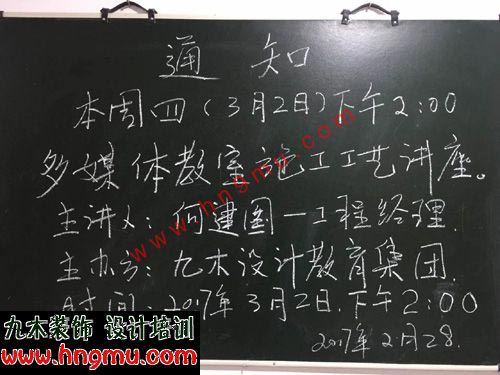 通知
本周四（3月2日）下午2:00
多媒体教室施工工艺讲座。
主讲人：何建国－工程经理.
主办方：九木设计教育集团.
时间：2017年3月2日.下午2:00
2017年2月28.
www.hngmu.com
九木装饰 设计培训
www.hngmu.com